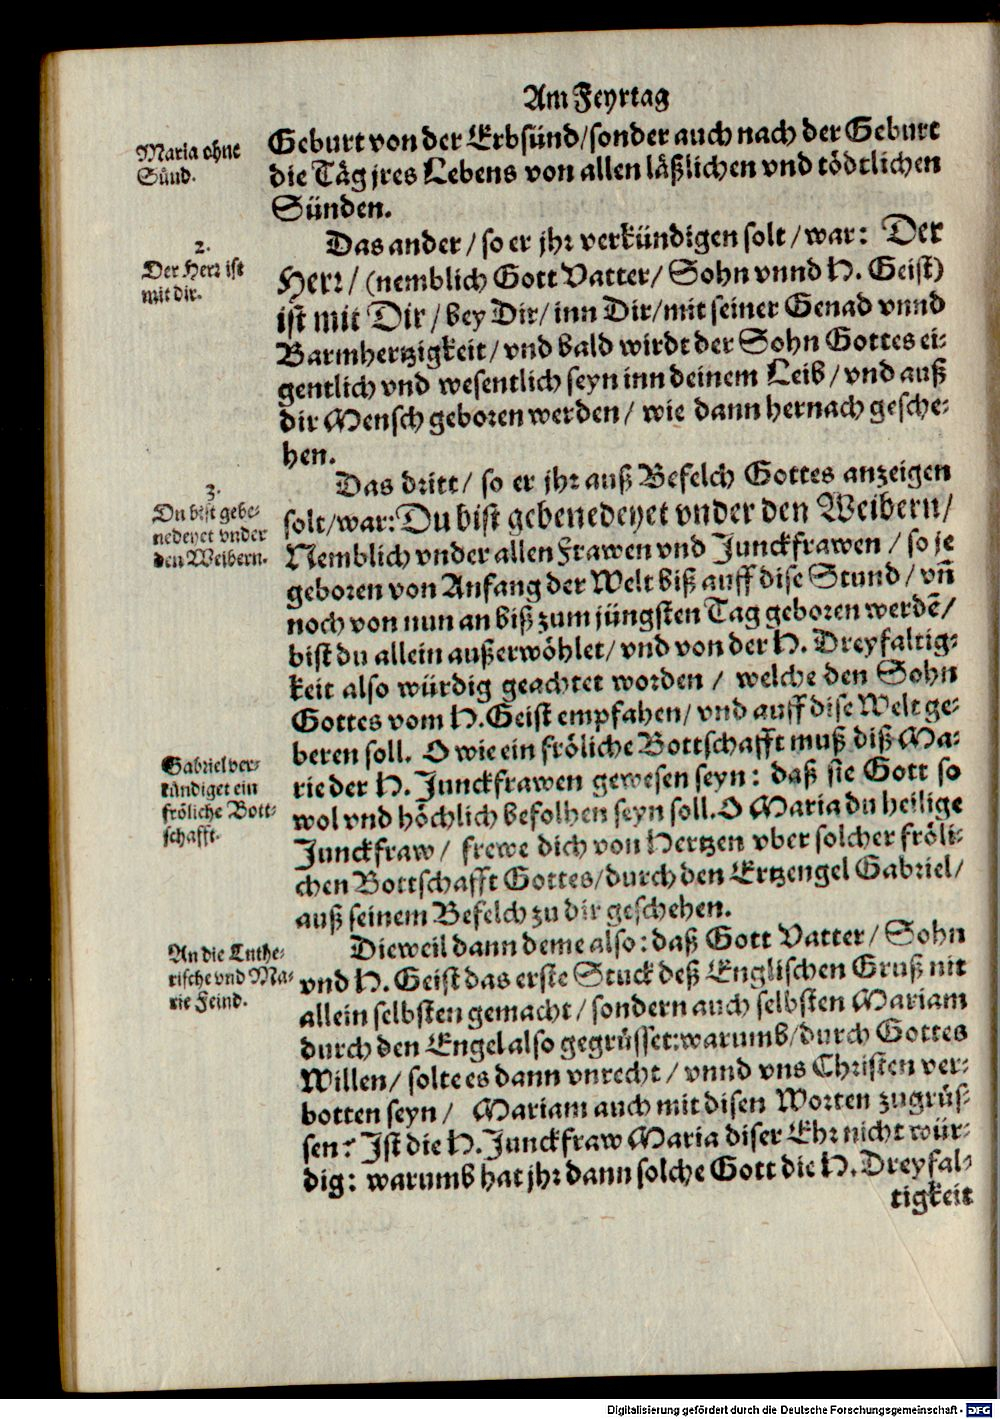 Am Feyrtag
Maria ohne
Sünd.
Geburt von der Erbsünd/sonder auch nach der Geburt
die Täg jres Lebens von allen läßlichen vnd tödtlichen
Sünden.
2.
Der Herr ist
mit dir.
Das ander/ so er jhr verkündigen solt/ war: Der
Herr/ (nemblich Gott Vatter/ Sohn vnnd H. Geist)
ist mit Dir/ bey Dir/ inn Dir/ mit seiner Genad vnnd
Barmhertzigkeit/ vnd bald wirdt der Sohn Gottes ei-
gentlich vnd wesentlich seyn inn deinem Leib/ vnd auß
dir Mensch geboren werden/ wie dann hernach gesche-
hen.
3.
Du bist gebe-
nedeyet vnder
den Weibern.
Das dritt/ so er jhr auß Befelch Gottes anzeigen
solt/war: Du bist gebenedeyet vnder den Weibern/
Nemblich vnder allen Frawen vnd Junckfrawen/ so je
geboren von Anfang der Welt biß auff dise Stund/ vñ
noch von nun an biß zum jüngsten Tag geboren werdẽ/
bist du allein außerwöhlet/ vnd von der H. Dreyfaltig-
keit also würdig geachtet worden/ welche den Sohn
Gottes vom H. Geist empfahen/ vnd auff dise Welt ge-
beren soll. O wie ein fröliche Bottschafft muß diß Ma-
Gabriel ver-
kündiget ein
fröliche Bott-
schafft.
rie der H. Junckfrawen gewesen seyn: daß sie Gott so
wol vnd höchlich befolhen seyn soll. O Maria du heilige
Junckfraw/ frewe dich von Hertzen vber solcher fröli-
chen Bottschafft Gottes/durch den Ertzengel Gabriel/
auß seinem Befelch zu dir geschehen.
An die Luthe-
rische vnd Ma-
rie Feind.
Dieweil dann deme also: daß Gott Vatter/ Sohn
vnd H. Geist das erste Stuck deß Englischen Gruß nit
allein selbsten gemacht/ sondern auch selbsten Mariam
durch den Engel also gegrüsset: warumb/durch Gottes
Willen/ solte es dann vnrecht/ vnnd vns Christen ver-
botten seyn/ Mariam auch mit disen Worten zugrüs-
sen? Ist die H. Junckfraw Maria diser Ehr nicht wür-
dig: warumb hat jhr dann solche Gott die H. Dreyfal-
tigkeit
Digitalisierung gefördert durch die Deutsche Forschungsgemeinschaft - DFG